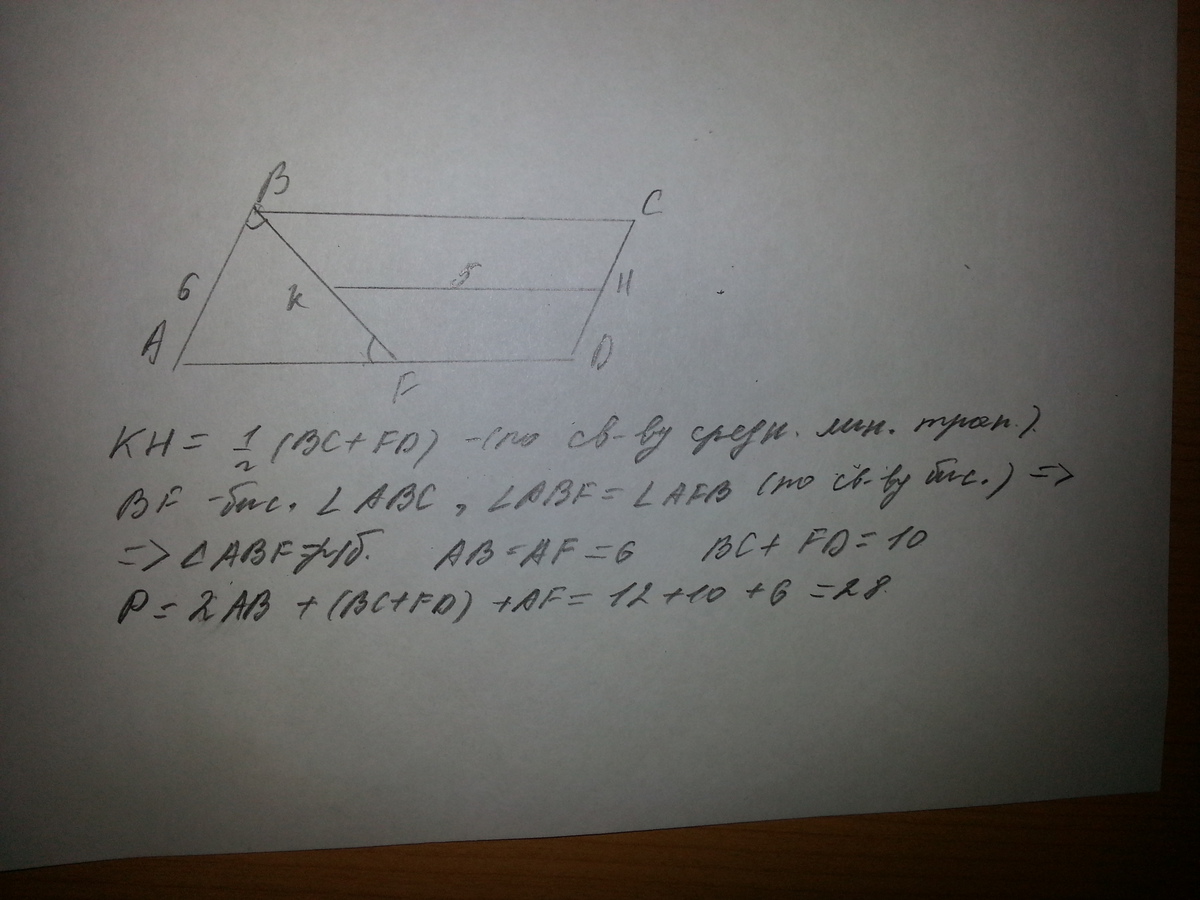 B
C
5
H
6
K
A
D
F
KH = 1/2 (BC+FD) - (по св-ву средн. лин. трап.)
BF - бис. ∠ABC, ∠ABF = ∠AFB (по св-ву бис.) =>
=> ∠ABF - р/б. AB = AF = 6 BC + FD = 10
P = 2AB + (BC+FD) + AF = 12 + 10 + 6 = 28.